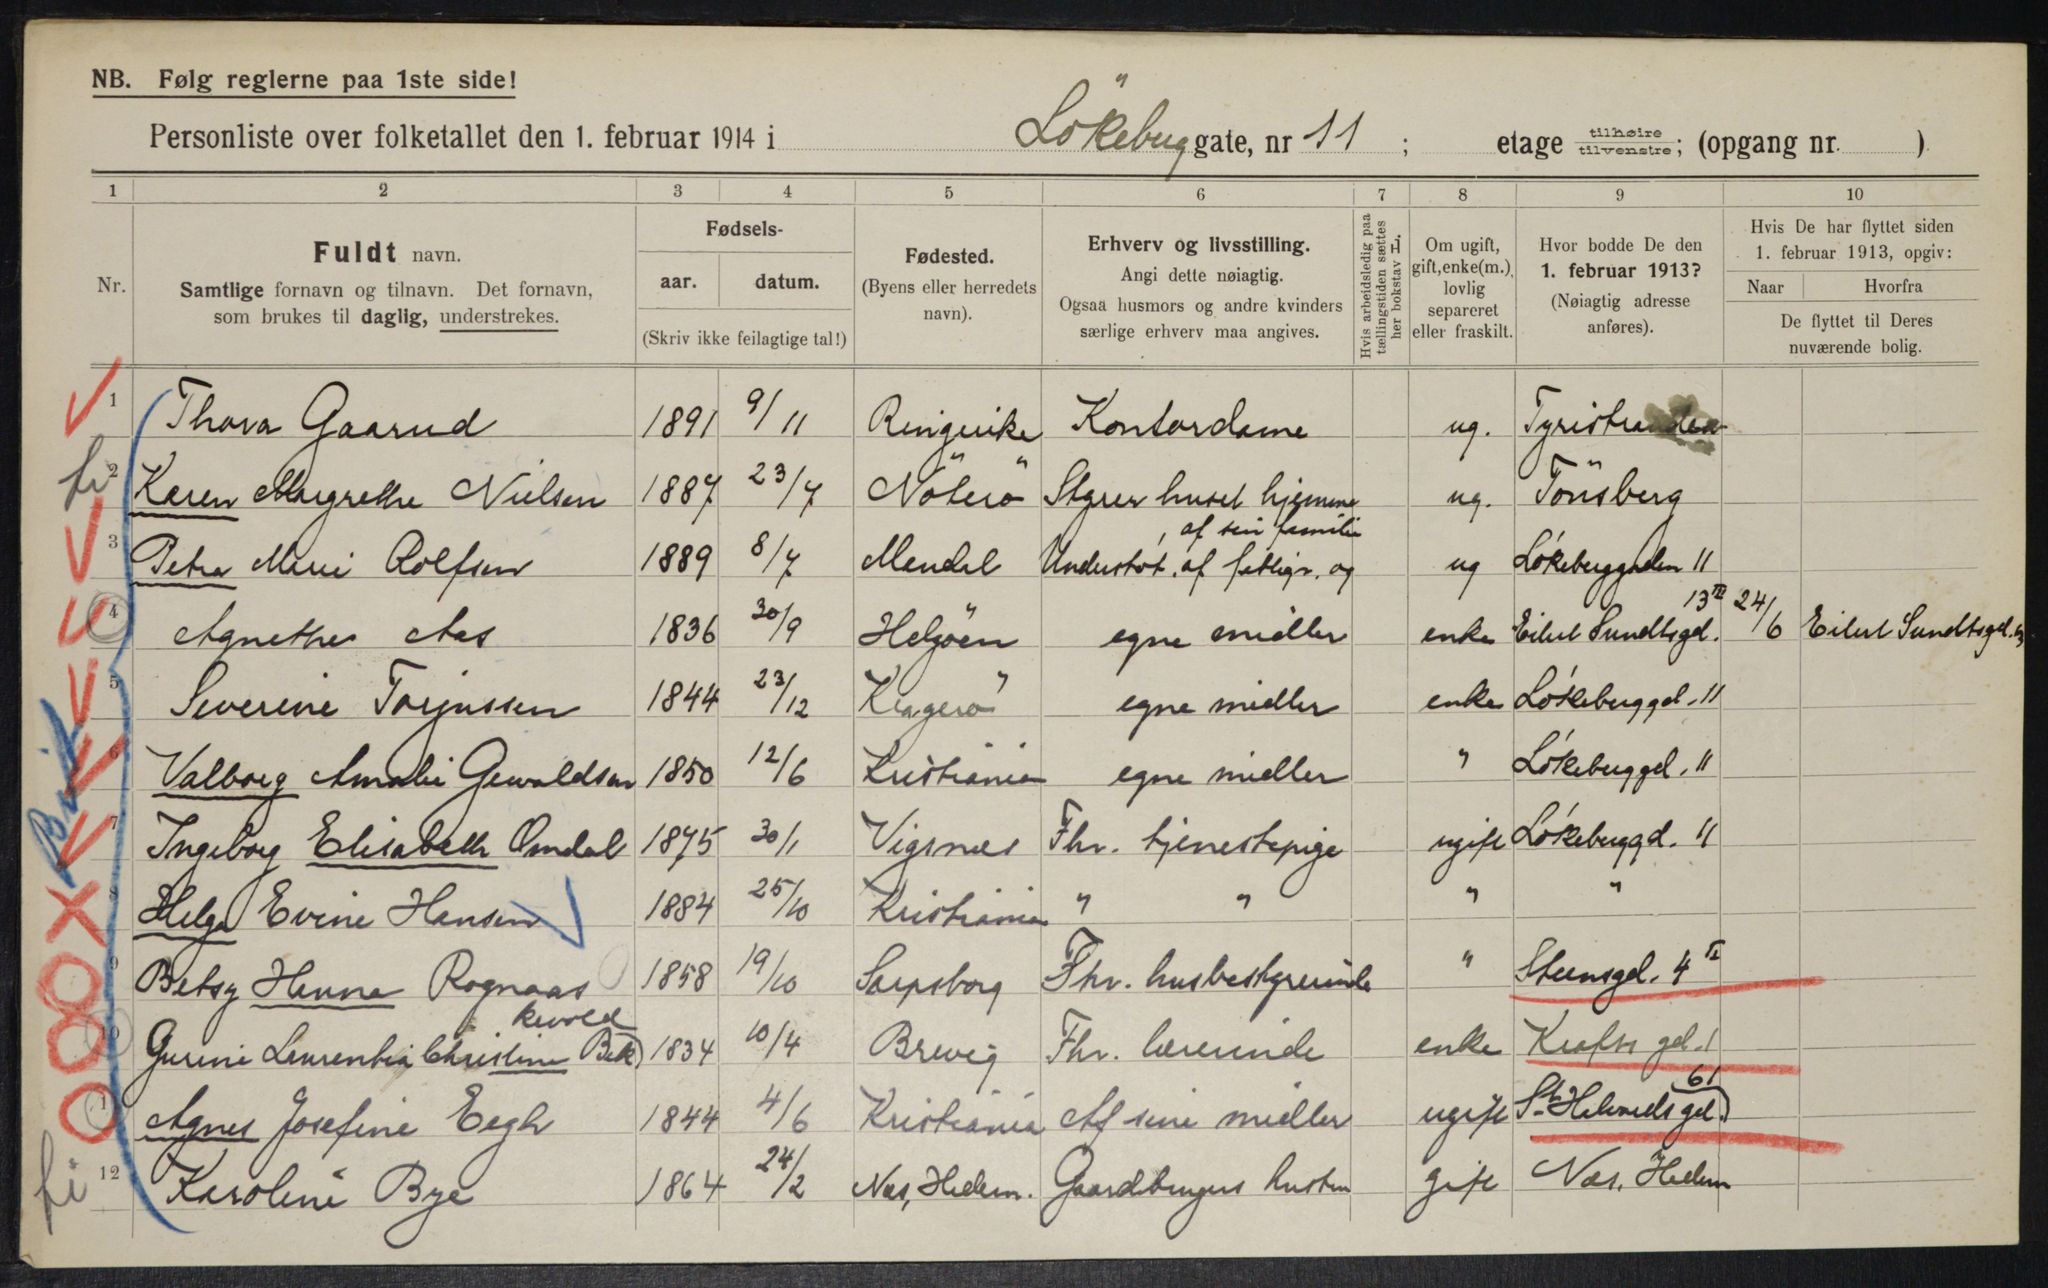 NB. Følg reglerne paa 1ste side!
Personliste over folketallet den 1. februar 1914 i Lökeberg gate, nr 11 ; etage tilhøire tilvenstre; (opgang nr. )
1 2 3 4 5 6 7 8 9 10
Nr.
Fuldt navn.
Samtlige fornavn og tilnavn. Det fornavn,
som brukes til daglig, understrekes.
Fødsels-
aar. datum.
(Skriv ikke feilagtige tal!)
Fødested.
(Byens eller herredets
navn).
Erhverv og livsstilling.
Angi dette nøiagtig.
Ogsaa husmors og andre kvinders
særlige erhverv maa angives.
Hvis arbeidsledig paa
tællingstiden sættes
her bokstav L.
Om ugift,
gift, enke(m.),
lovlig
separeret
eller fraskilt.
Hvor bodde De den
1. februar 1913?
(Nøiagtig adresse
anføres).
Hvis De har flyttet siden
1. februar 1913, opgiv:
Naar Hvorfra
De flyttet til Deres
nuværende bolig.
1 Thora Gaarud 1891 9/11 Ringerike Kontordame ug. Tyristranden
2 Karen Margrethe Nielsen 1887 23/7 Nöterö Styrer huset hjemme ug. Tönsberg
3 Petra Marie Rolfsen 1889 8/7 Mandal Understöt. af fattigv. og af sin familie ug Lökeberggaden 11
4 Agnethe Aas 1836 30/9 Helgöen egne midler enke Eilert Sundtsgd. 13 III 24/6 Eilert Sundtsgd. 13
5 Severine Torjussen 1844 23/12 Kragerö egne midler enke Lökeberggd. 11
6 Valborg Amalie Gewaldsen 1850 12/6 Kristiania egne midler " Lökeberggd. 11
7 Ingeborg Elisabeth Omdal 1875 30/1 Vigsnes Fhv. tjenestepige ugift Lökeberggd. 11
8 Helga Evine Hansen 1884 25/10 Kristiania " " " "
9 Betsy Hanna Rognaas 1858 19/10 Sarpsborg Fhv. husbestyrerinde " Steensgd. 4 II
10 Gurine Laurentia Christine Bekkevold 1834 10/4 Brevig Fhv. lærerinde enke Krafts gd. 1
11 Agnes Josefine Eegh 1844 4/6 Kristiania Af sine midler ugift St. Halvards gd. 61
12 Karoline Bye 1864 24/2 Nes, Hedem. Gaardbrugers hustru gift Nes, Hedem